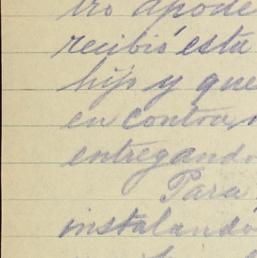 tro apode
recibió esta
hijo y que
en contra,
entregando
Para
instalando